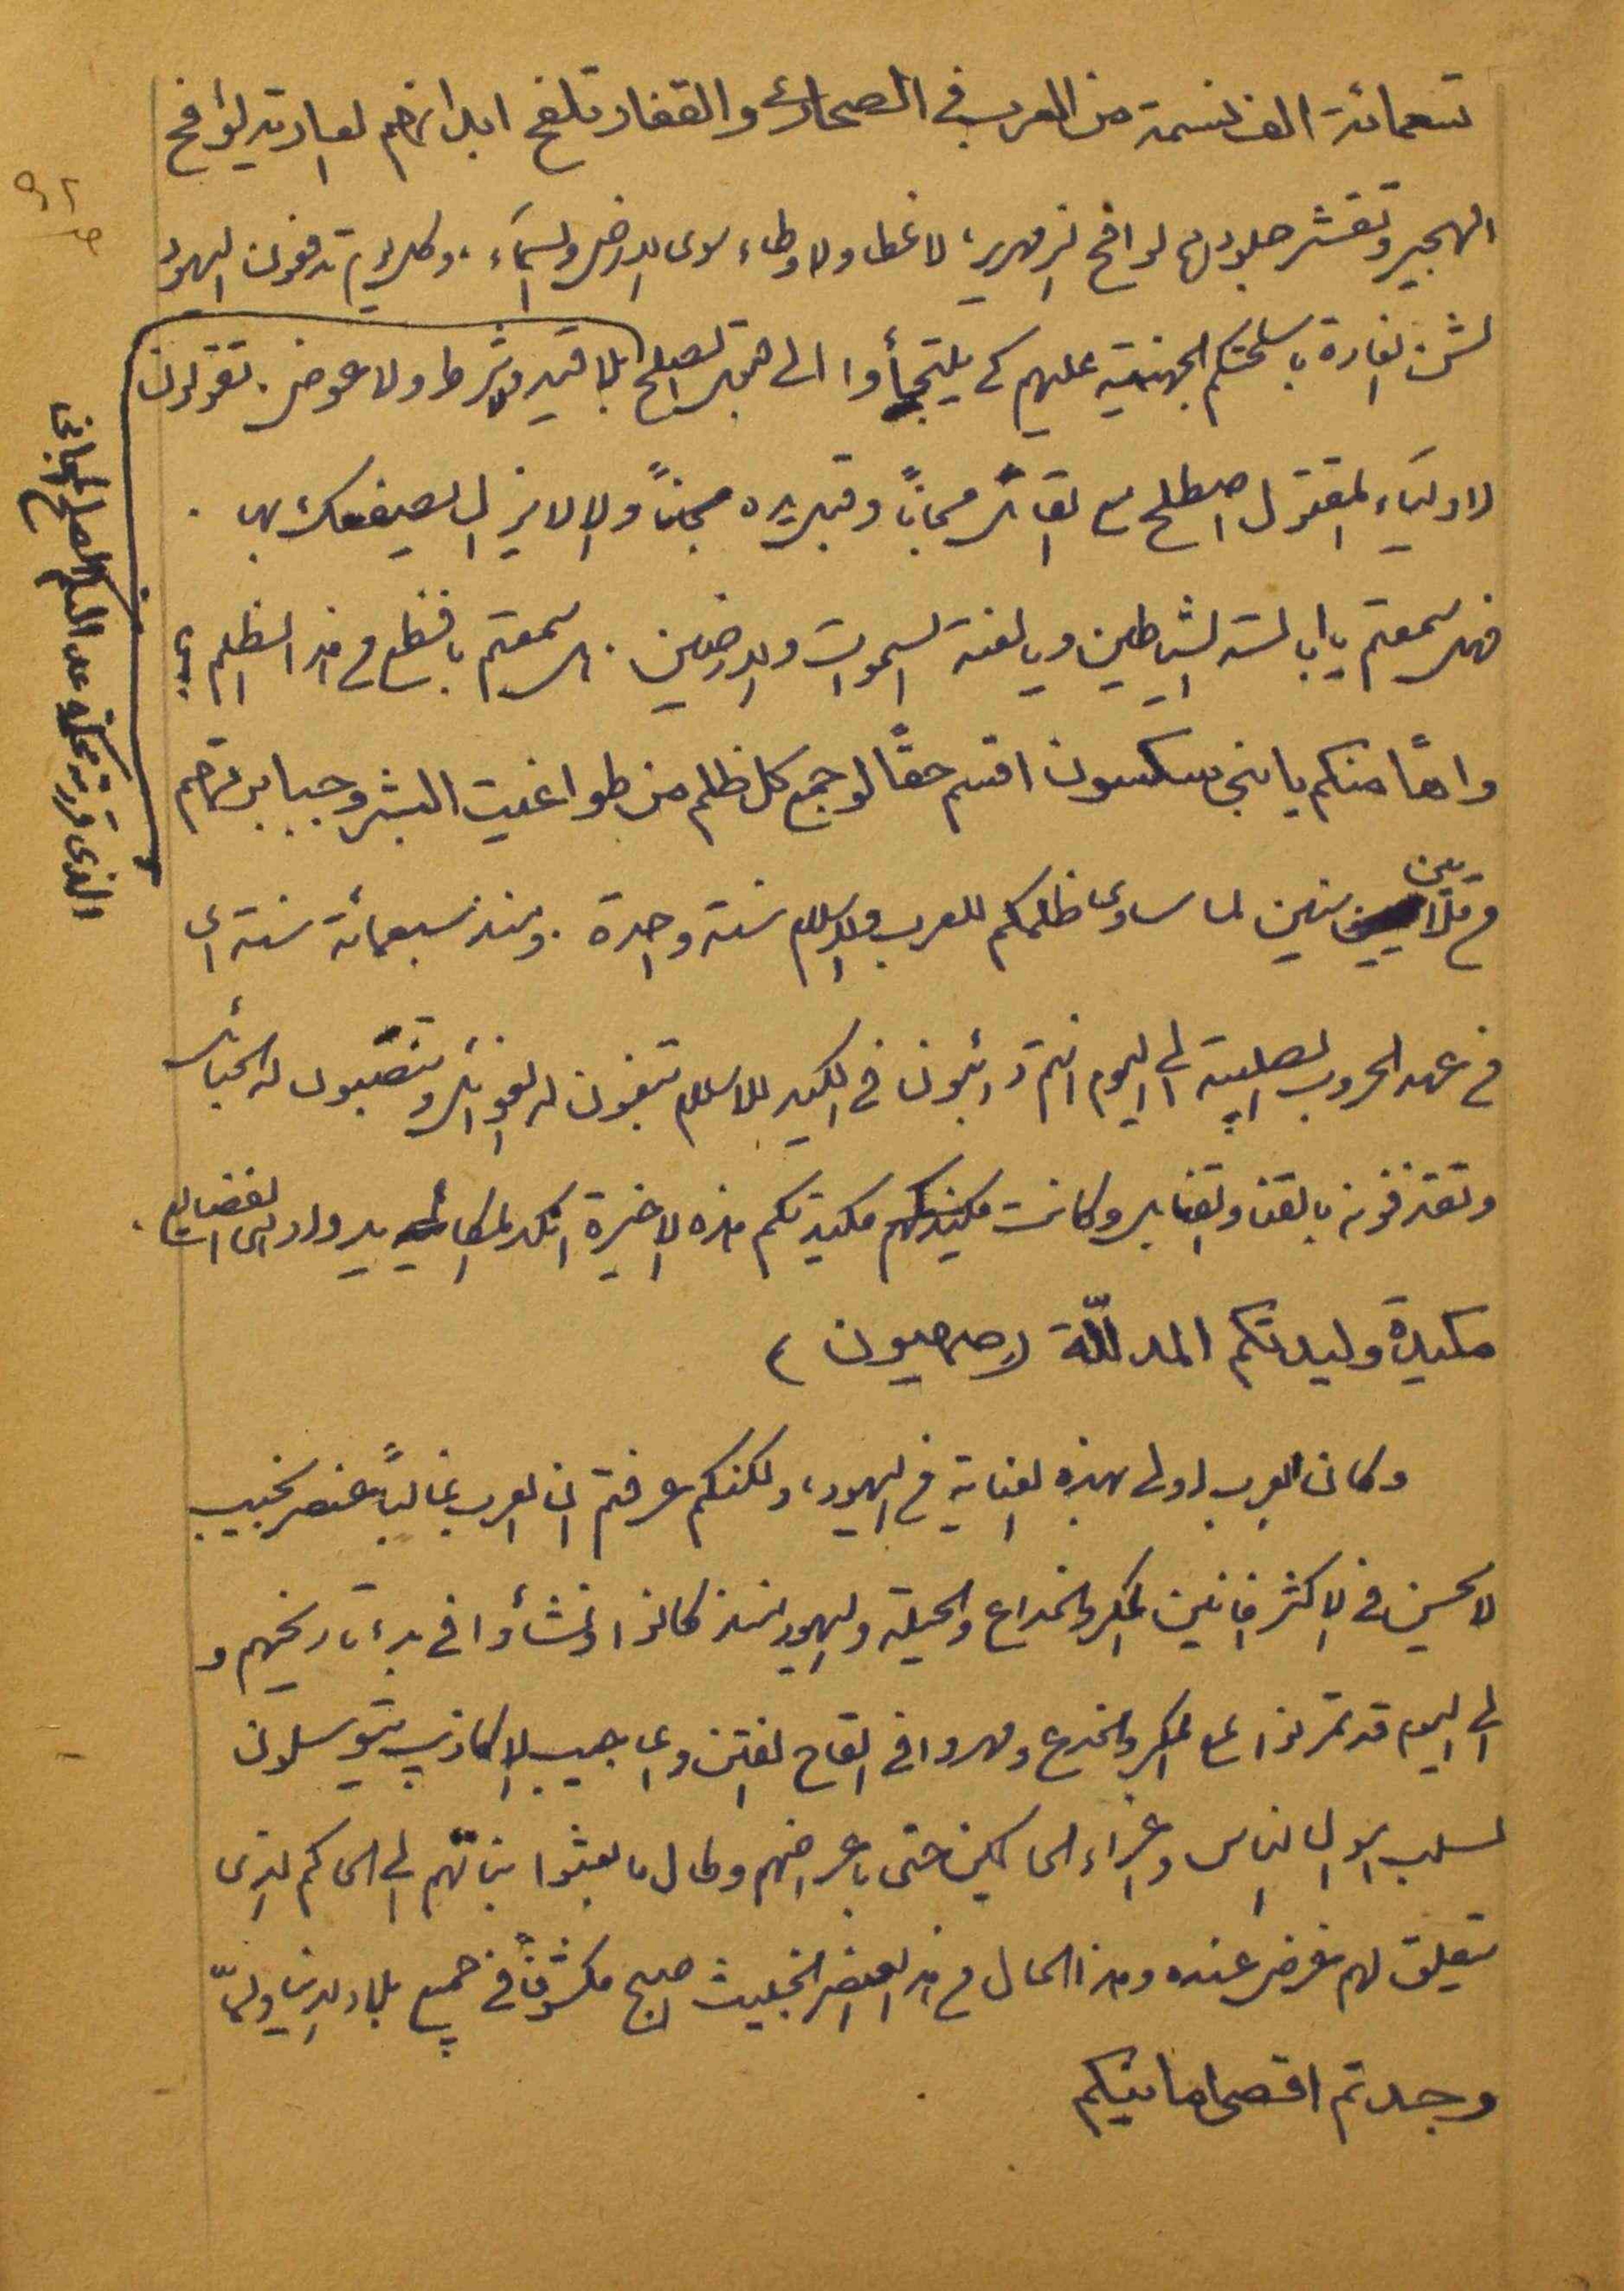 تسعمائة الف نسمة من العرب في الصحارى والقفار تلفح ابدانهم العارية لوافح
الهجير وتقشر جلودها لوافح الزمهرير، لا غطاء ولا وطاء سوى الارض والسماء، وكل يوم تدفعون اليهود
لشن الغارة باسلحتكم الجهنمية عليهم كي يلتجأوا الى الصلح بلا قيد ولا شرط ولا عوض. تقولون
لاولياء المقتول اصطلح مع القاتل مجاناً وتبريه مجاناً والا لا يزال السيف بها.
فهل سمعتم يا ابالسة الشياطين ويا لعنة السموات والارضين. هل سمعتم بافظع من هذا الظلم؟
واهاً منكم يا بني سكسون اقسم حقاً لو جمع كل ظلم من طواغيت البشر وجبابرتهم
من ملايين سنين لما ساوى ظلمكم للعرب والاسلام سنة واحدة. ومنذ سبعمائة سنة اي
من عهد الحروب الصليبية الى اليوم انتم دائبون في الكيد للاسلام تبغون له الغوائل وتنصبون له الحبائل
وتقذفونه بالقنا والقنابل وكانت مكيدتكم هذه الاخيرة انكد المكائد
مكيدة وليدتكم المدللة (صهيون)
وكان العرب اولى بهذه العناية من اليهود، ولكنكم عرفتم ان العرب غالباً عنصر نجيب
لا يحسن في الاكثر افانين المكر والخداع والحيلة واليهود منذ كانوا ونشأوا في بدء تاريخهم و
الى اليوم قد تمرنوا على المكر والخدع ومهروا في القاح الفتن واعاجيب الاكاذيب يتوسلون
لسلب اموال الناس واغراء الحاكمين حتى باعراضهم وطال ما بعثوا بناتهم الى الحاكم الذي
يتعلق لهم غرض عنده وهذا الحال من هذا العنصر الخبيث اصبح مكشوفاً في جميع بلاد الدنيا ولما
وجدتم اقصى امانيكم
الذي قررته محكمة عدالتكم الصلح المجاني